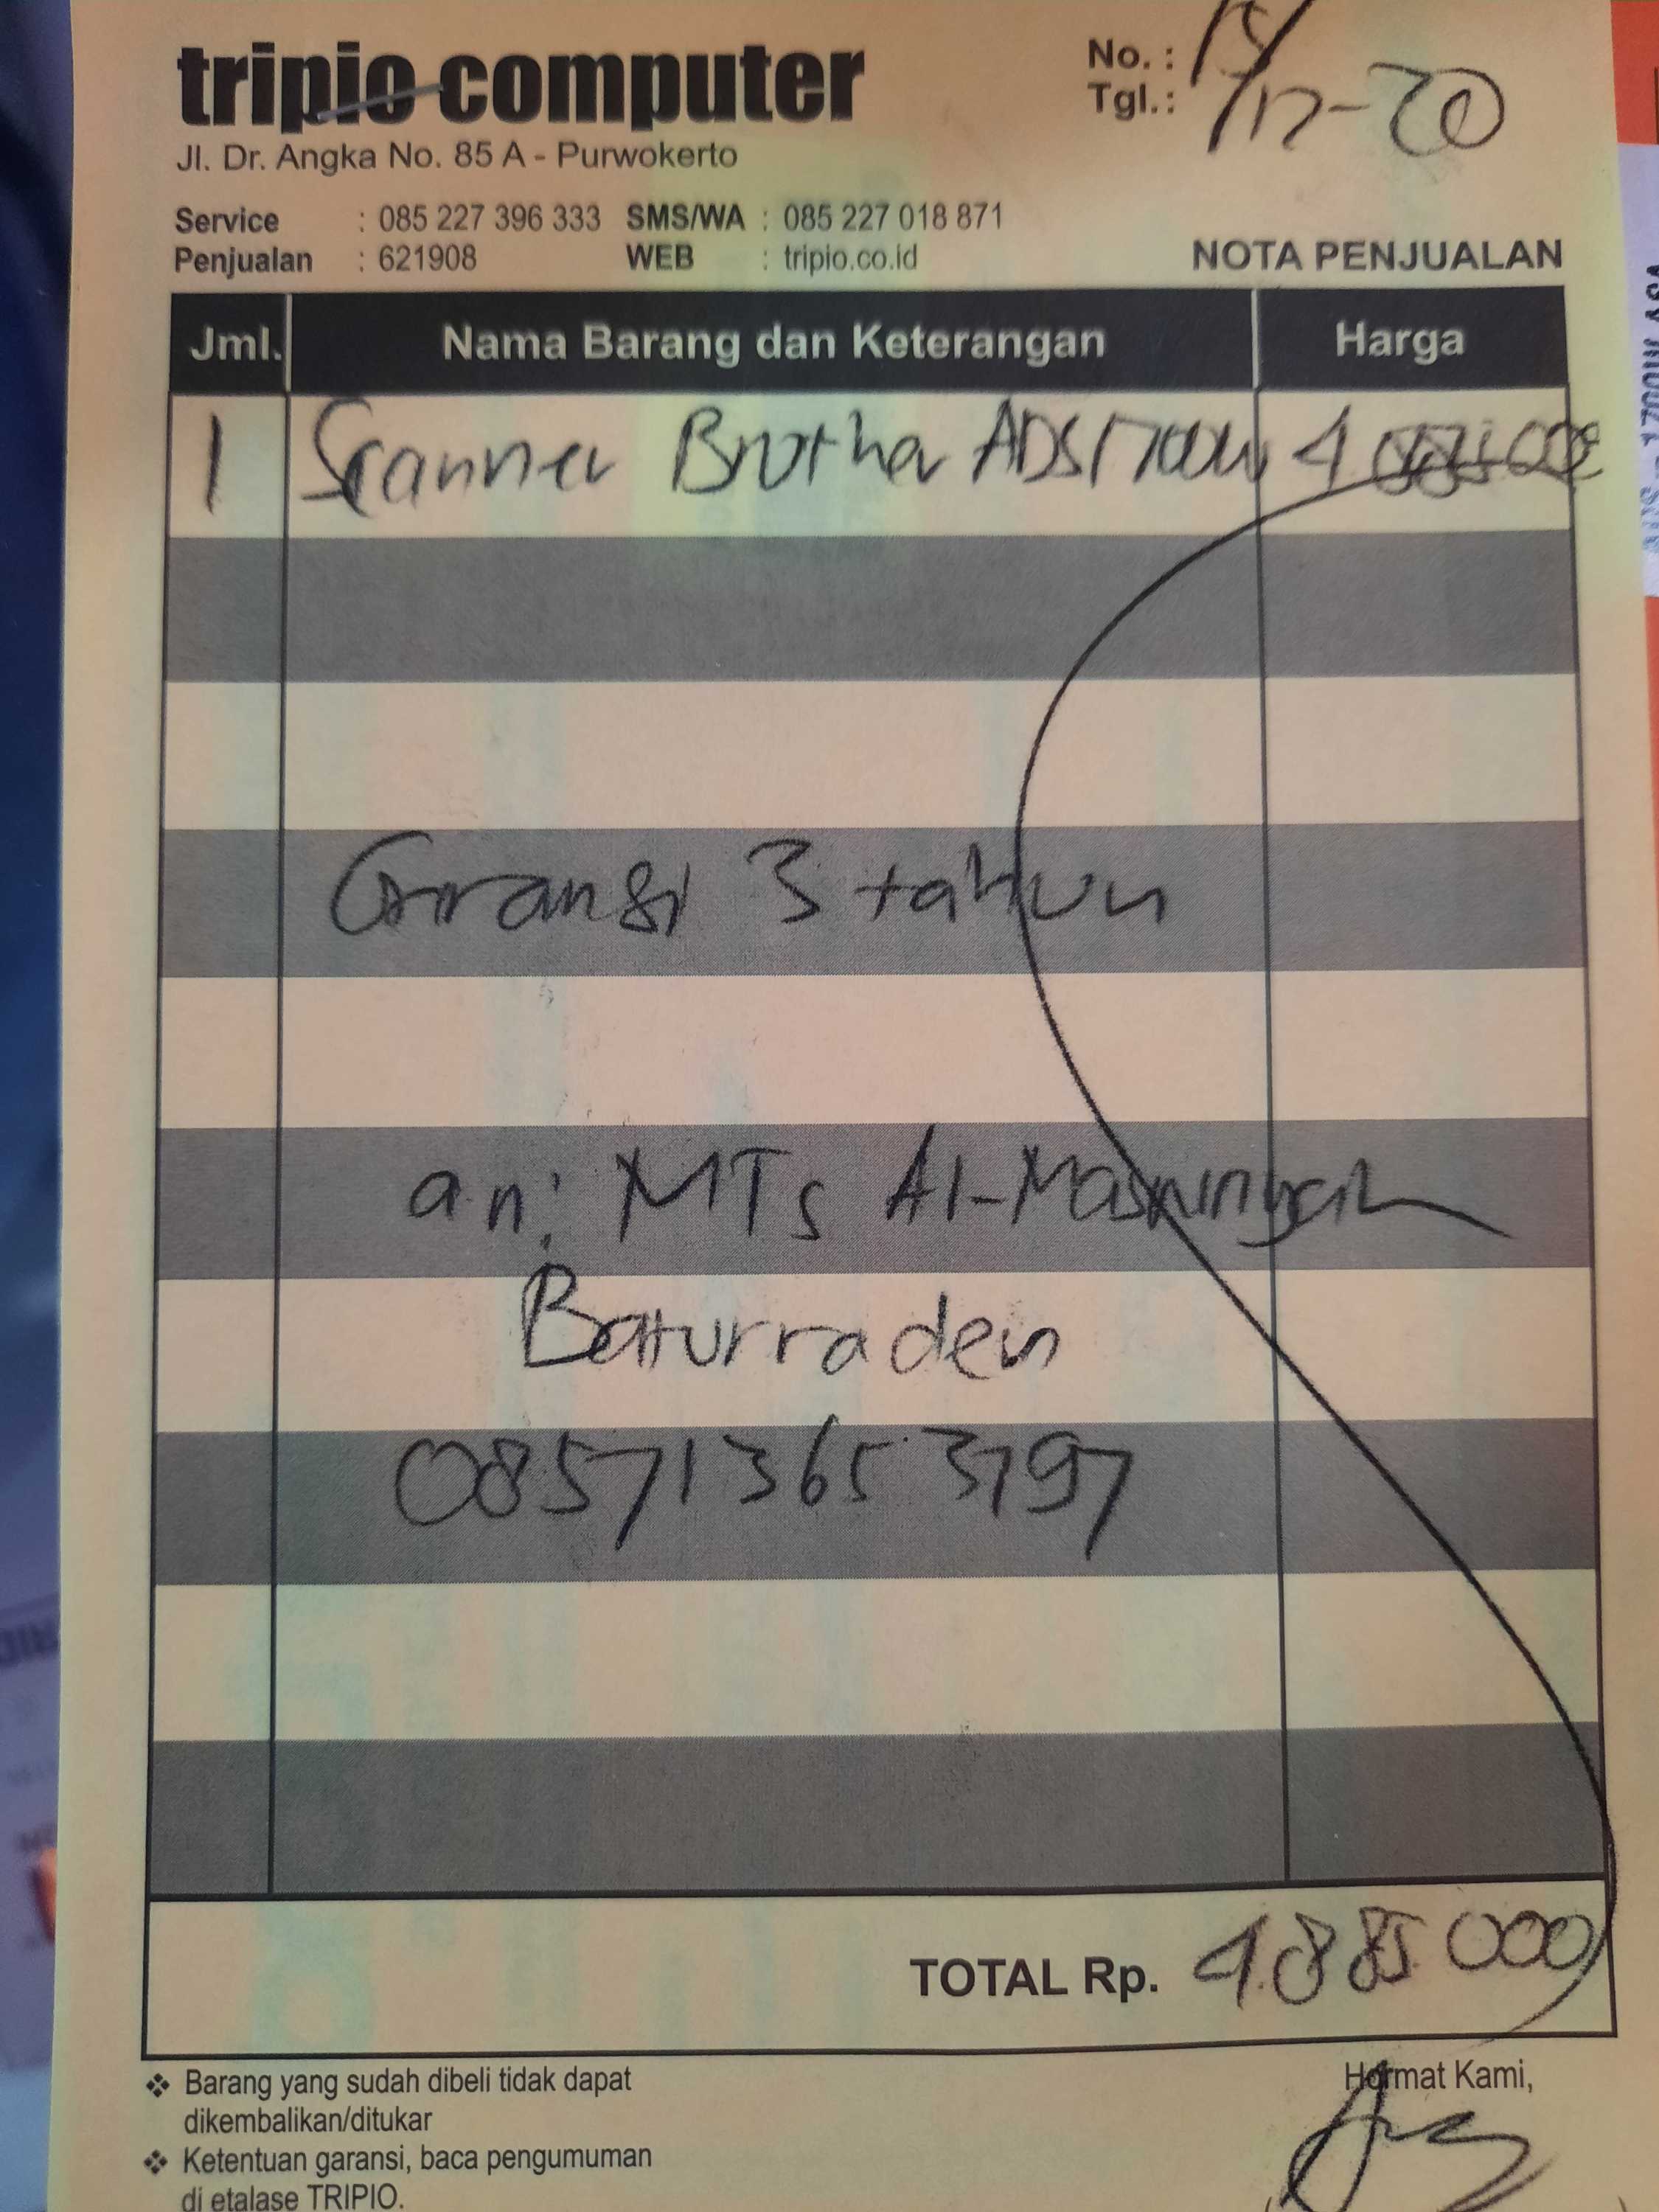 tripio computer
No. :
Jl. Dr. Angka No. 85 A - Purwokerto
Tgl. : 15/12-20
Service : 085 227 396 333 SMS/WA : 085 227 018 871
Penjualan : 621908 WEB : tripio.co.id
NOTA PENJUALAN
Jml. Nama Barang dan Keterangan Harga
1 Scanner Brother ADS1700W 4
Garansi 3 tahun
an: MTs Al-Masruriyah
Baturraden
085713653797
TOTAL Rp. 4.885.000
❖ Barang yang sudah dibeli tidak dapat
dikembalikan/ditukar
❖ Ketentuan garansi, baca pengumuman
di etalase TRIPIO.
Hormat Kami,